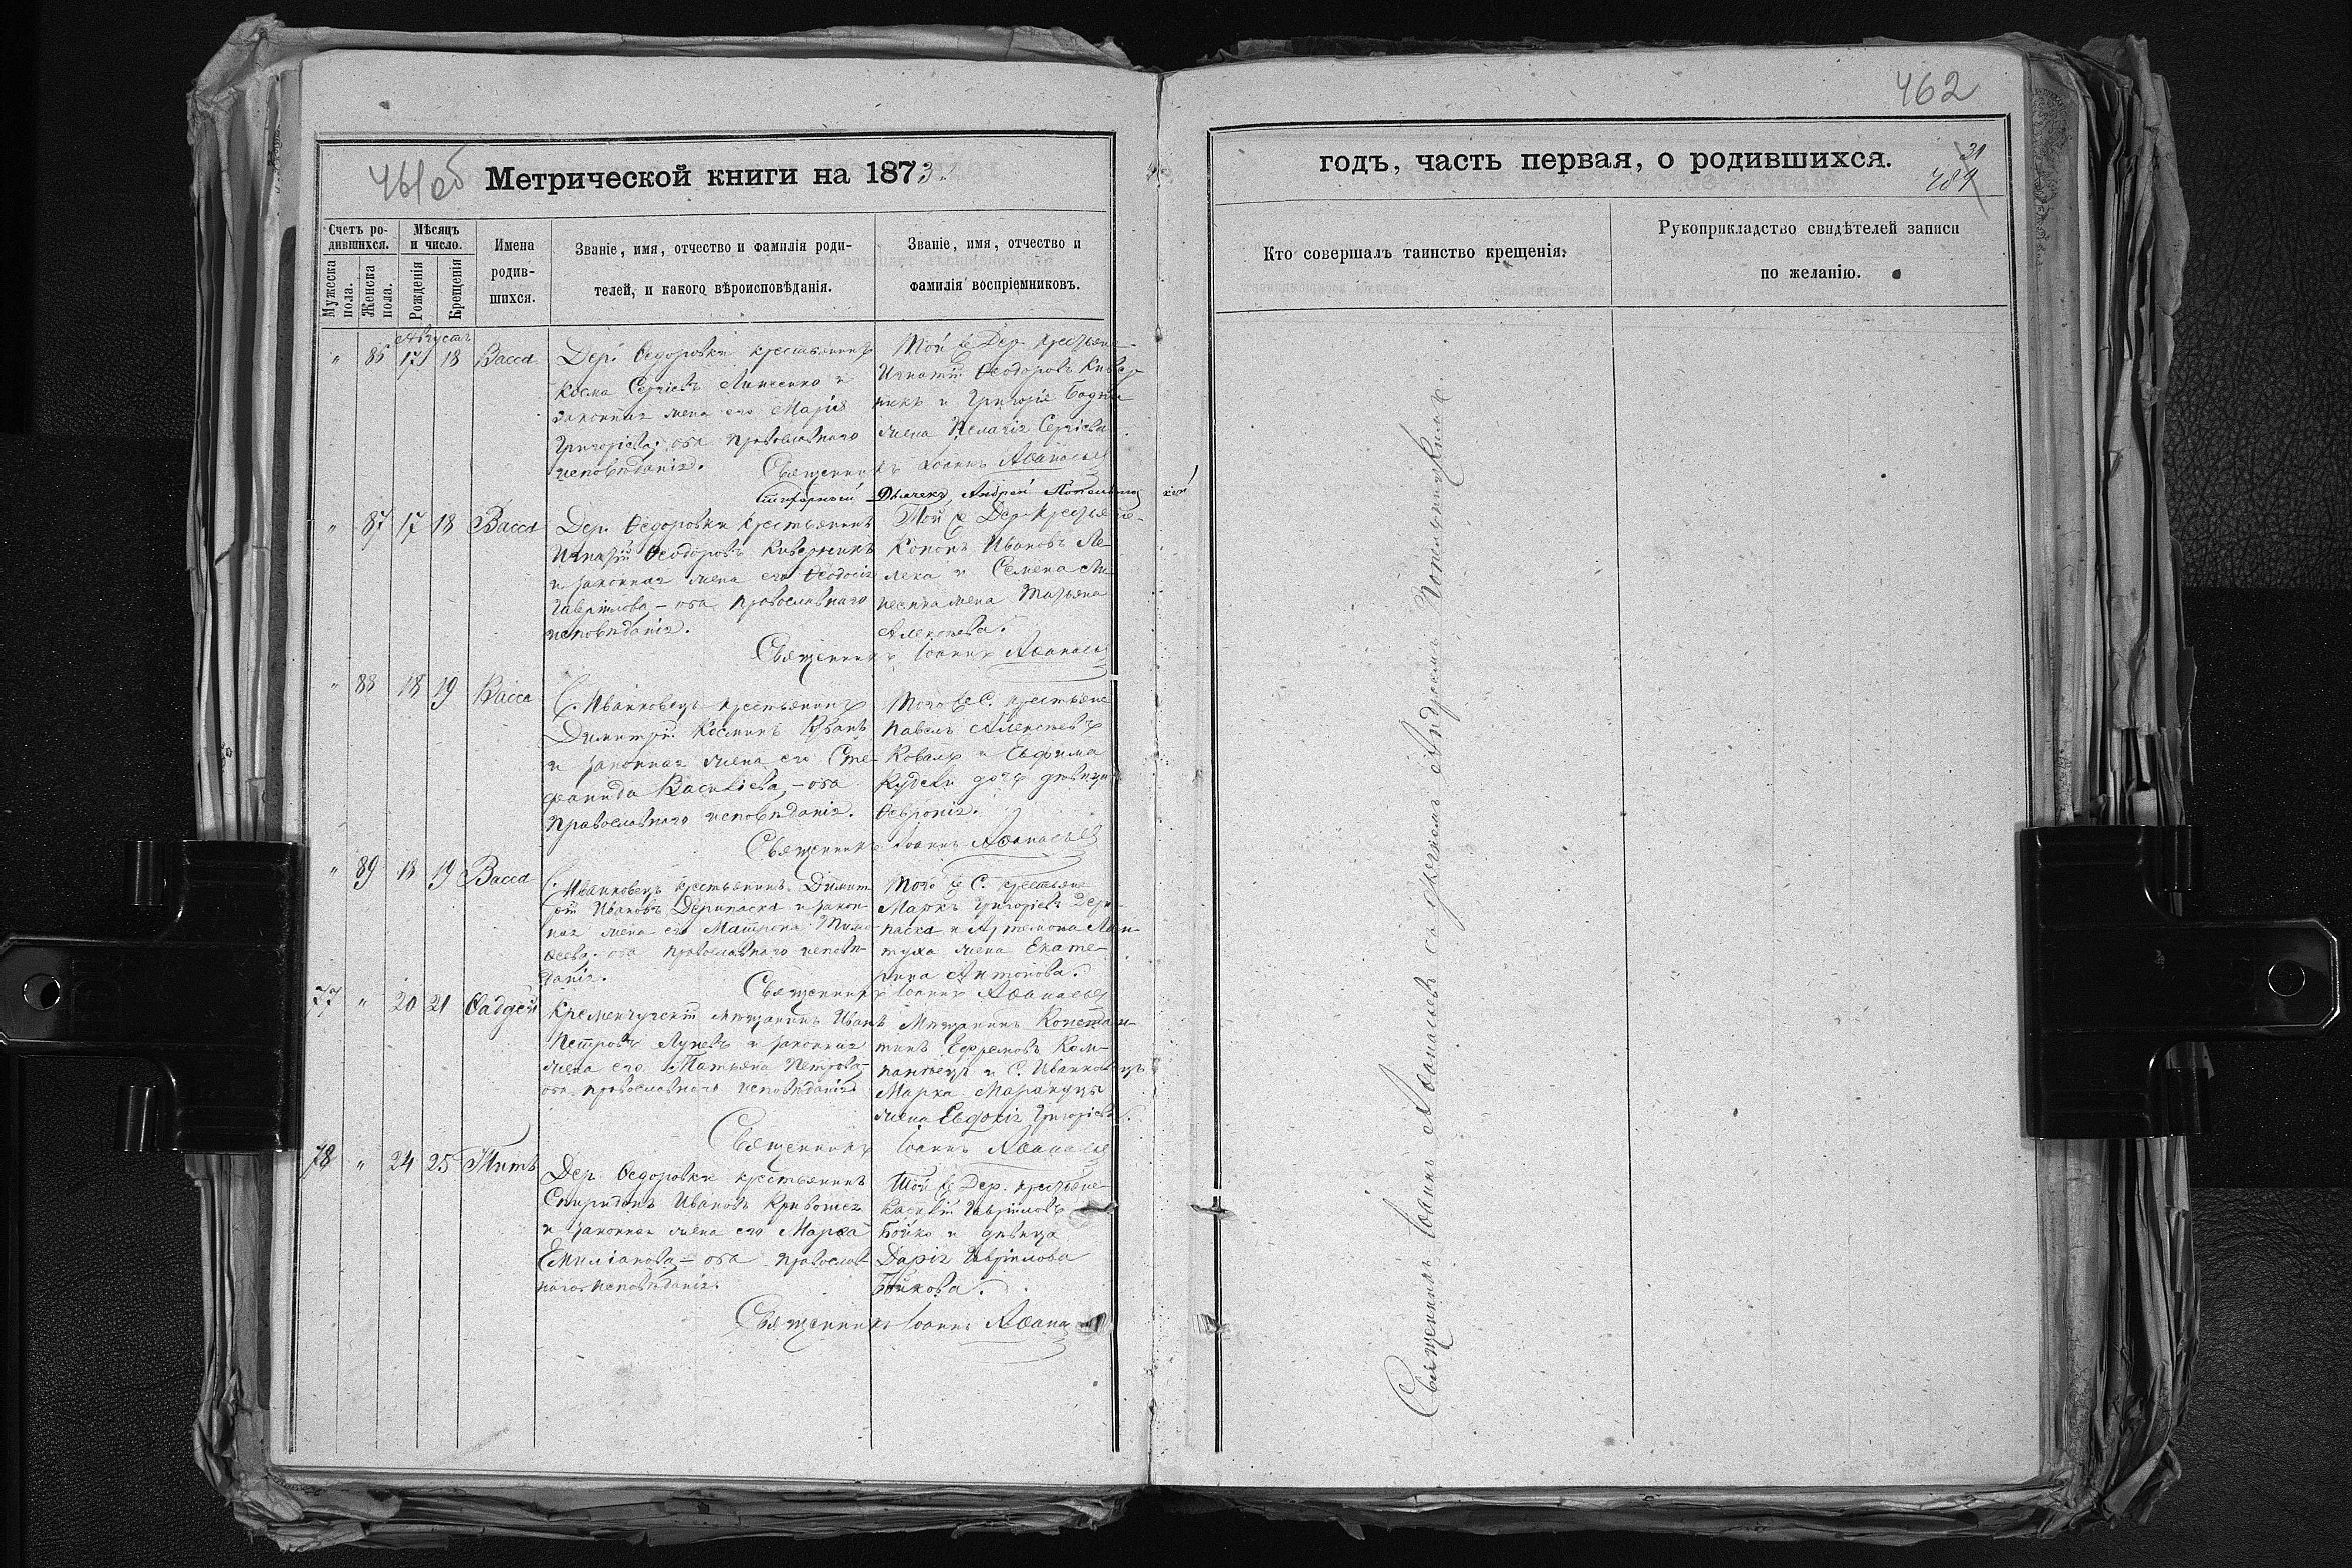 461об
Метрической книги на 1873.
Счетъ ро-
дившихся.
Мѣсяцъ
и число.
Имена
родив-
шихся.
Званіе, имя, отчество и фамилія роди-
телей, и какого вѣроисповѣданія.
Званіе, имя, отчество и
фамилія воспріемниковъ.
Мужеска
пола.
Женска
пола.
Рожденія
Крещенія
Августъ
" 86 17 18 Васса
Дер. Ѳедоровки крестьянинъ
Косма Сергіевъ Линсенко и
законная жена его Марія
Григоріева; оба православнаго
исповѣданія.
Той же Дер. крестьяне
Игнатій Ѳеодоровъ Кивер
никъ и Григорія
жена Пелагія Сергіева
Священникъ Іоаннъ Аѳанасьев
Дьячекъ Андрей Попельницкій
" 87 17 18 Васса
Дер. Ѳедоровки крестьянинъ
Игнатій Ѳеодоровъ Киверникъ
и законная жена его Ѳеодосія
Гавріилова – оба православнаго
исповѣданія.
Той же Дер. крестьяне-
Кононъ Ивановъ Ле
лека и Семена Ли
жена Татьяна
Алексѣева.
Священникъ Іоаннъ Аѳанасьев
" 88 18 19 Васса
С. Иванковецъ крестьянинъ
Димитрій Косминъ
и законная жена его Сте-
фанида Василіева, – оба
православнаго исповѣданія.
Того же С. крестьяне
Павелъ Алексѣевъ
Коваль и Евфима
дочь дѣвица
Ѳевронія.
Священникъ Іоаннъ Аѳанасьев
" 89 18 19 Васса
С. Иванковецъ крестьянинъ Димит
рій Ивановъ Дерипаска и закон-
ная жена его Матрона Тимо
ѳеева. оба православнаго исповѣ-
данія.
Того же С. крестьяне
Маркъ Григоріевъ Дери-
паска и Артемона
жена Екате-
рина Антонова.
Священникъ Іоаннъ Аѳанасьев
77 " 20 21 Ѳаддей
Кременчугскій мѣщанинъ Иванъ
Петровъ Лукевъ и законная
жена его Татьяна Петрова-
оба православнаго исповѣданія
Мѣщанинъ Констан-
тинъ Ефремовъ Ком-
панѣецъ и С. Иванковецъ
Марка
жена Евдокія Григоріева.
Священникъ Іоаннъ Аѳанасьев
78 " 24 25 Титъ
Дер. Ѳедоровки крестьянинъ
Спиридонъ Ивановъ Кривошея
и законная жена его Марѳа
Емиліанова – оба православ-
наго исповѣданія.
Той же Дер. крестьяне
Гавріиловъ
Бойко и дѣвица
Дарія Гавріилова
Бойкова.
Священникъ Іоаннъ Аѳана
462
годъ, часть первая, о родившихся.
31
484
Кто совершалъ таинство крещенія.
Рукоприкладство свидѣтелей записи
по желанію.
Священникъ Іоаннъ Аѳанасьевъ съ дьячкомъ Андреемъ Попельницкимъ.